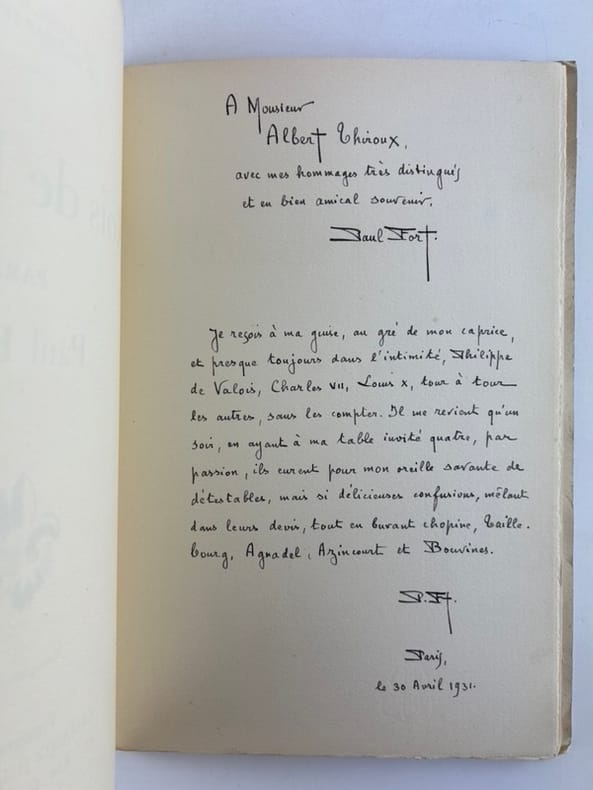 A Monsieur
Albert Thiroux,
avec mes hommages très distingués
et en bien amical souvenir.
Paul Fort.
Je reçois à ma guise, au gré de mon caprice,
et presque toujours dans l'intimité, Philippe
de Valois, Charles VII, Louis X, tour à tour
les autres, sans les compter. Il me revient qu'un
soir, en ayant à ma table invité quatre, par
passion, ils eurent pour mon oreille savante de
détestables, mais si délicieuses confusions, mêlant
dans leurs devis, tout en buvant chopine, Taille-
bourg, Agnadel, Azincourt et Bouvines.
P. F.
Paris,
le 30 Avril 1931.